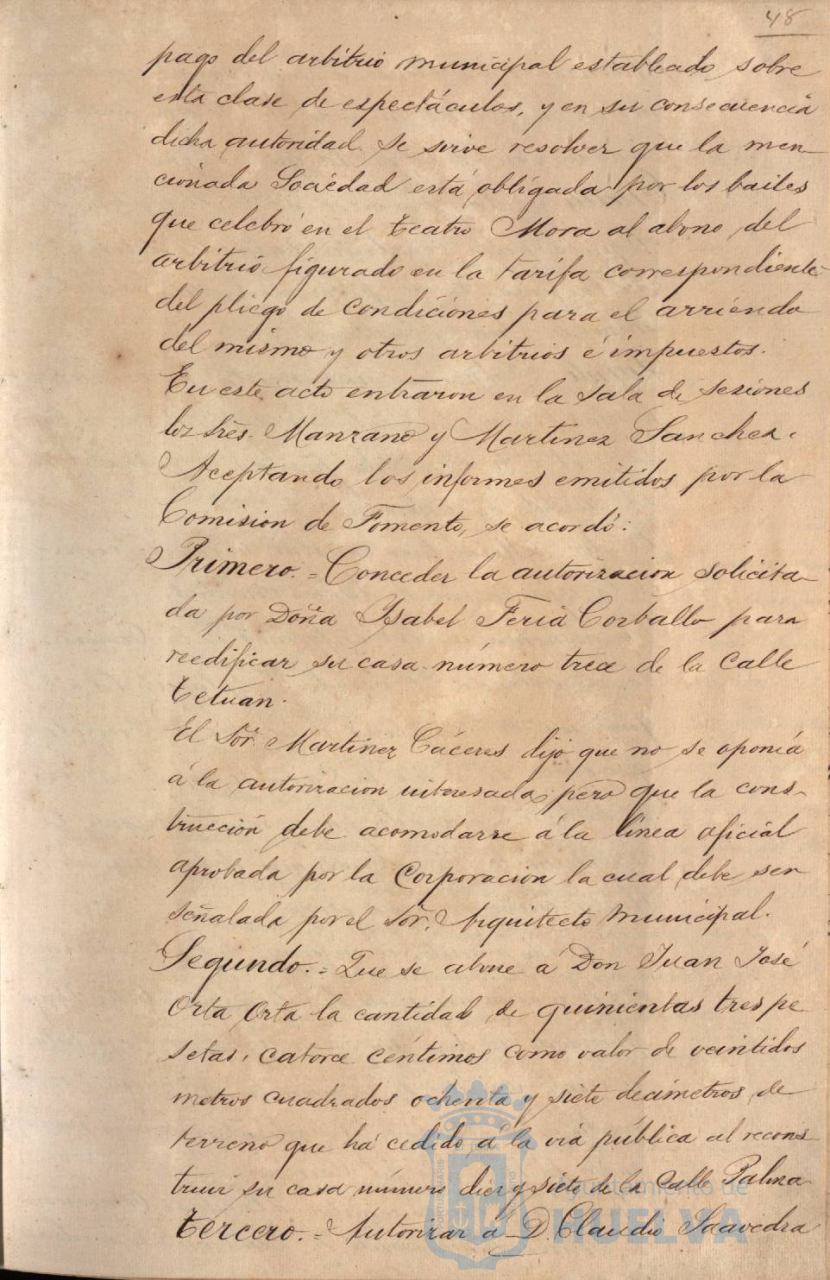 48
pago del arbitrio municipal establecido sobre
esta clase de espectáculos, y en su consecuencia
dicha autoridad se sirve resolver que la men-
cionada Sociedad está obligada por los bailes
que celebró en el teatro Mora al abono del
arbitrio figurado en la tarifa correspondiente
del pliego de condiciones para el arriendo
del mismo y otros arbitrios é impuestos.
En este acto entraron en la sala de sesiones
los Sres. Manzano y Martinez Sanchez.
Aceptando los informes emitidos por la
Comision de Fomento, se acordó:
Primero.= Conceder la autorizacion solicita-
da por Doña Ysabel Feria Corballo para
reedificar su casa número trece de la calle
Tetuan.
El Sor. Martinez Cáceres dijo que no se oponía
á la autorizacion interesada, pero que la cons-
trucción debe acomodarse á la línea oficial
aprobada por la Corporacion la cual debe ser
señalada por el Sor. Arquitecto Municipal.
Segundo.= Que se abone á Don Juan José
Orta Orta la cantidad de quinientas tres pe
setas, catorce céntimos como valor de veintidos
metros cuadrados ochenta y siete decímetros de
terreno que há cedido á la vía pública al recons
truir su casa número diez y siete de la Calle Palma
Tercero.= Autorizar a D Claudio Saavedra
Ayuntamiento de
HUELVA